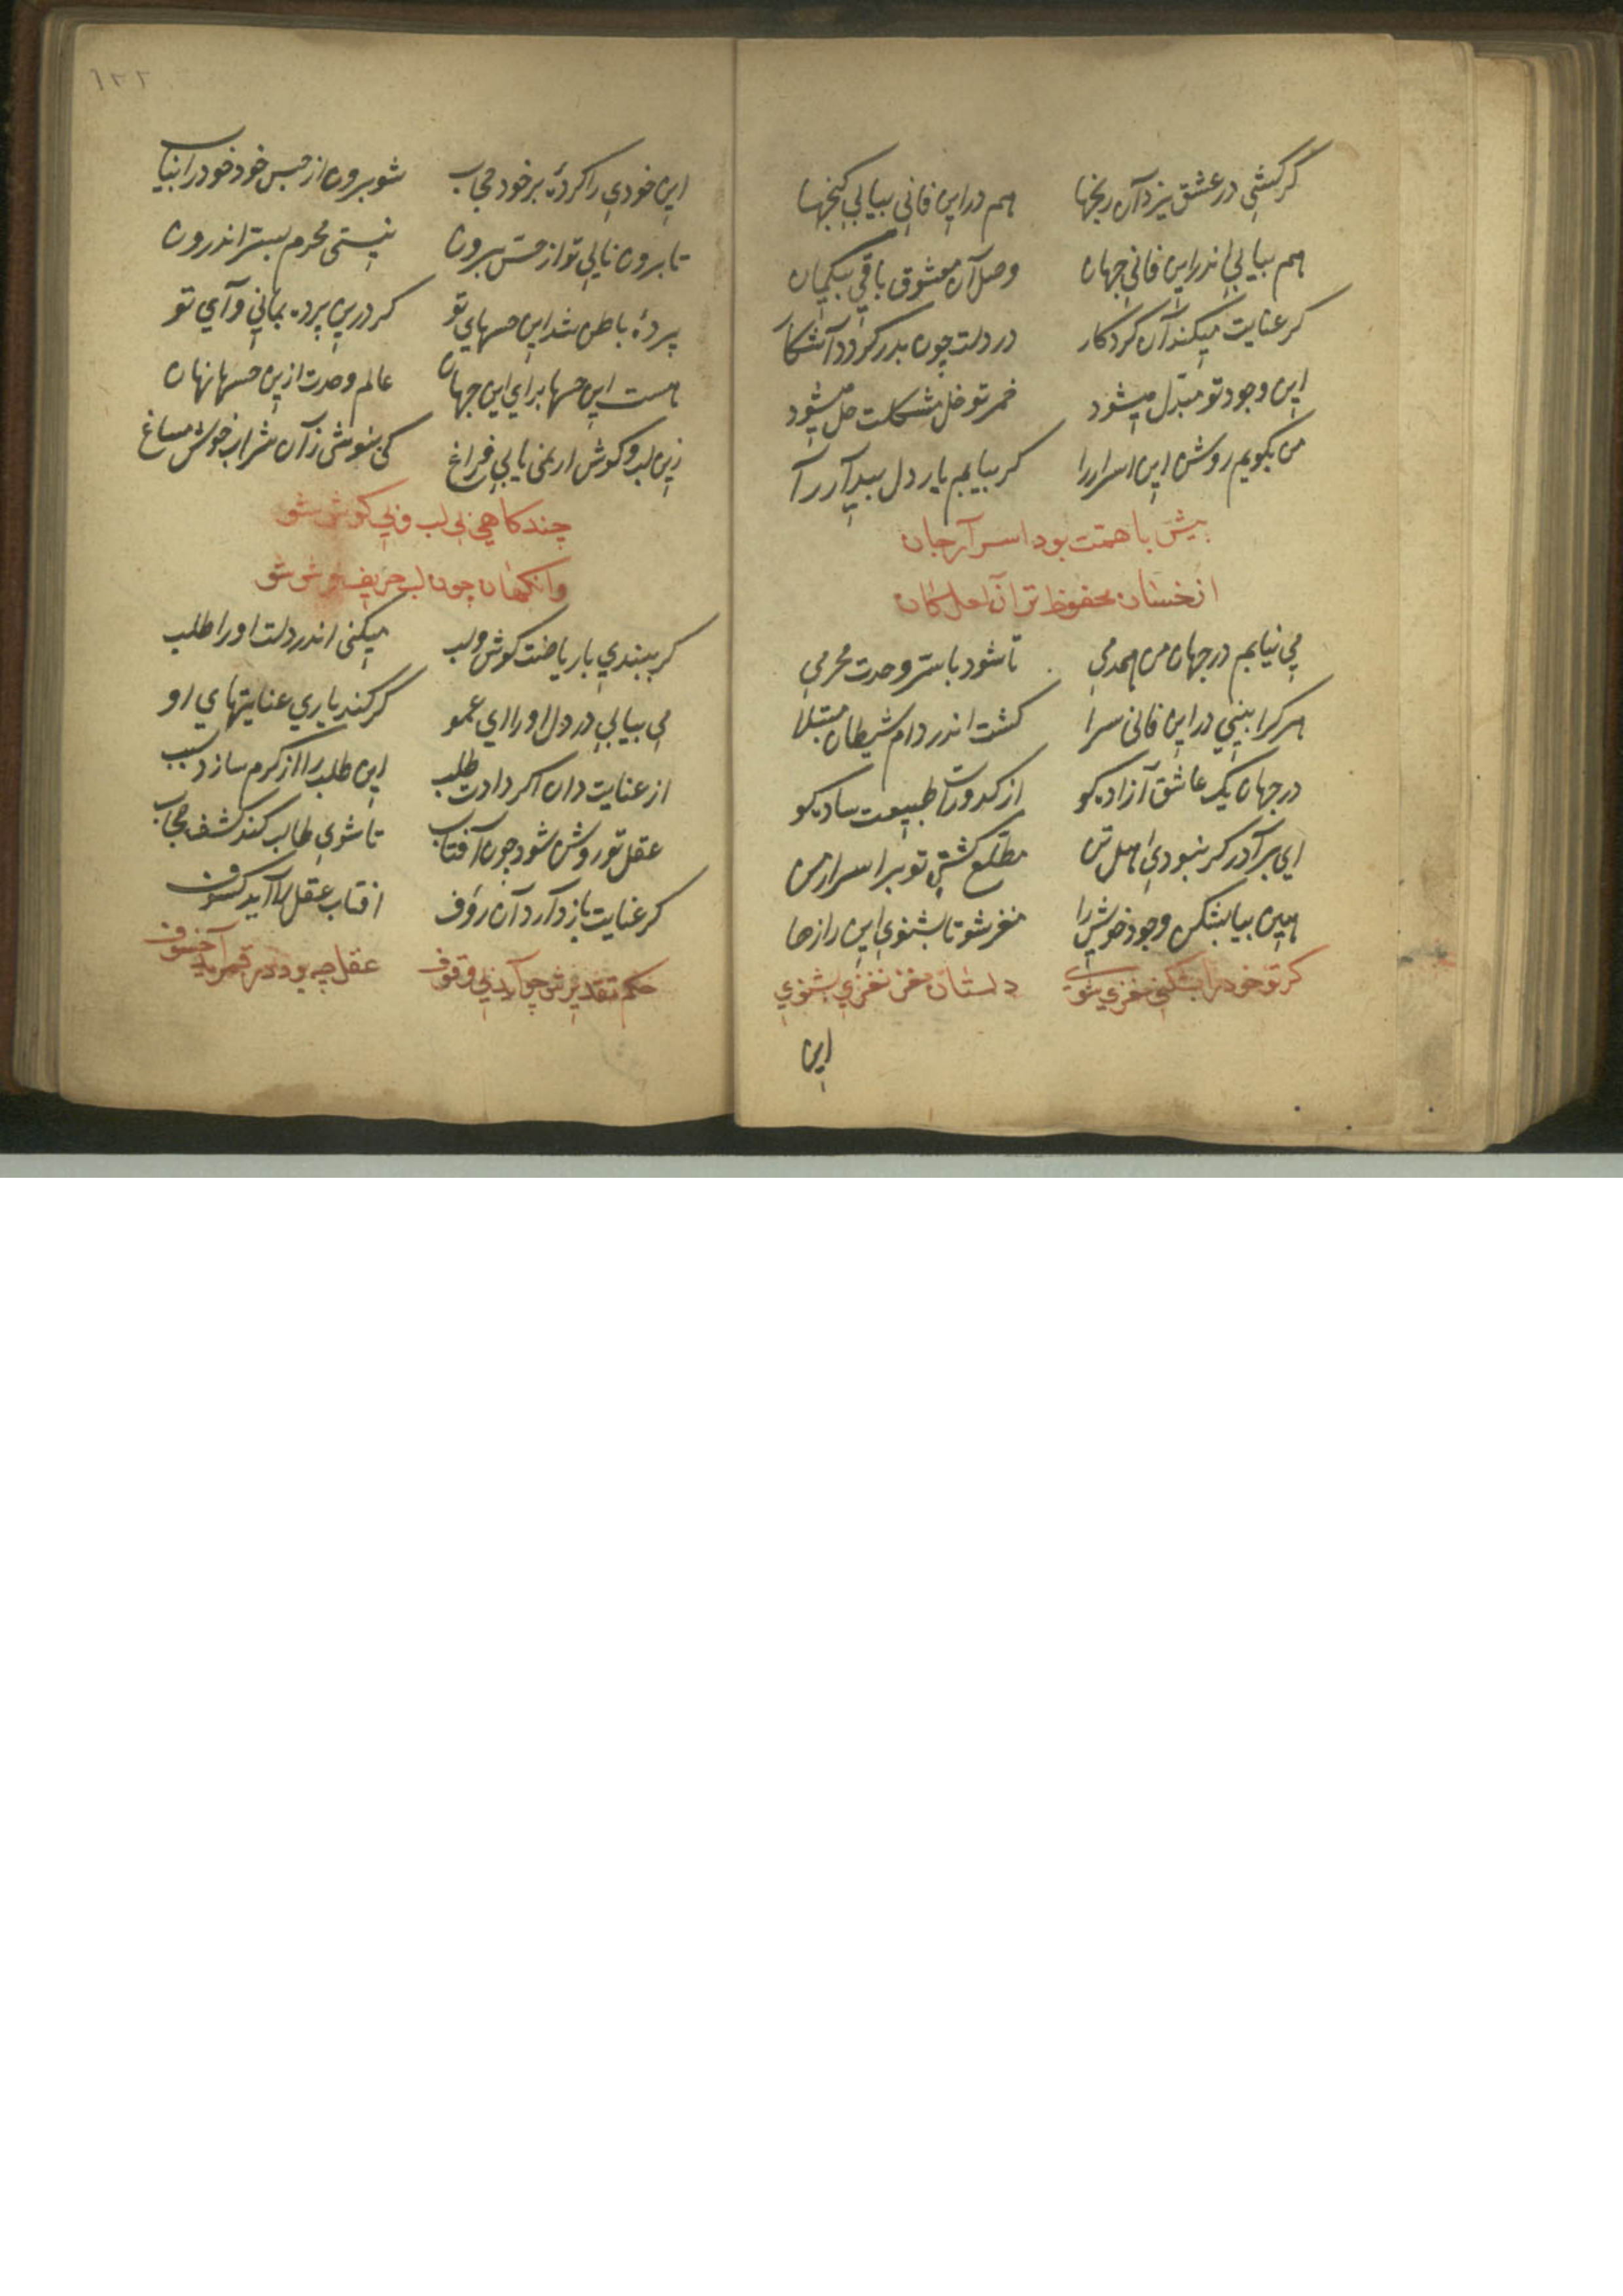 کر کشی در عشق یزد آن رنجها هم در این فانی بیابی کنجها
هم بیابی اندر این فانی جهان وصل آن معشوق باقی بیکمان
کر عنایت میکند آن کردکار در دلت چون بدر کردد آشکار
این وجود تو مبدل میشود خمر تو خل مشکلت حل میشود
من بکویم روشن این اسرار را کر بیابم یار دل بیدار را
پیش با همت بود اسرار جان
از خسان محفوظ تر آن لعل کان
می نیابم در جهان من همدمی تا شود با سر وحدت محرمی
هر کرا بینی در این فانی سرا کشت اندر دام شیطان مبتلا
در جهان یک عاشق آزاده کو از کدورات طبیعت ساده کو
ای برادر کر نبودی اهل تن مطلع کشتی تو بر اسرار من
هین بیا بشکن وجود خویش را مغز شو تا بشنوی این رازها
کر تو خود را بشکنی مغزی شوی داستان مغز نغزی بشنوی
این
۱۲۲
این خودی را کردۀ بر خود حجاب شو برون از حبس خود خود را بیاب
تا برون نایی تو از حس برون نیستی محرم بستر اندرون
پردۀ باطن شد این حسهای تو کر درین پرده بمانی وآی تو
هست این حسها برای این جهان عالم وحدت ازین حسها نهان
زین لب و کوش ار نمی یابی فراغ کی بنوشی زآن شراب خوش مساغ
چند کاهی بی لب و بی کوش شو
وانکهان چون لب حریف نوش شو
کر ببندی با ریاضت کوش و لب میکنی اندر دلت او را طلب
می بیابی در دل او را ای عمو کر کند یاری عنایتهای او
از عنایت دان اکر دادت طلب این طلب را از کرم سازد سبب
عقل تو روشن شود چون آفتاب تا شوی طالب کند کشف حجاب
کر عنایت باز دآرد آن رؤف افتاب عقل را آید کسوف
حکم تقدیرش چو آید بی وقوف عقل چه بود در قمر آید خسوف